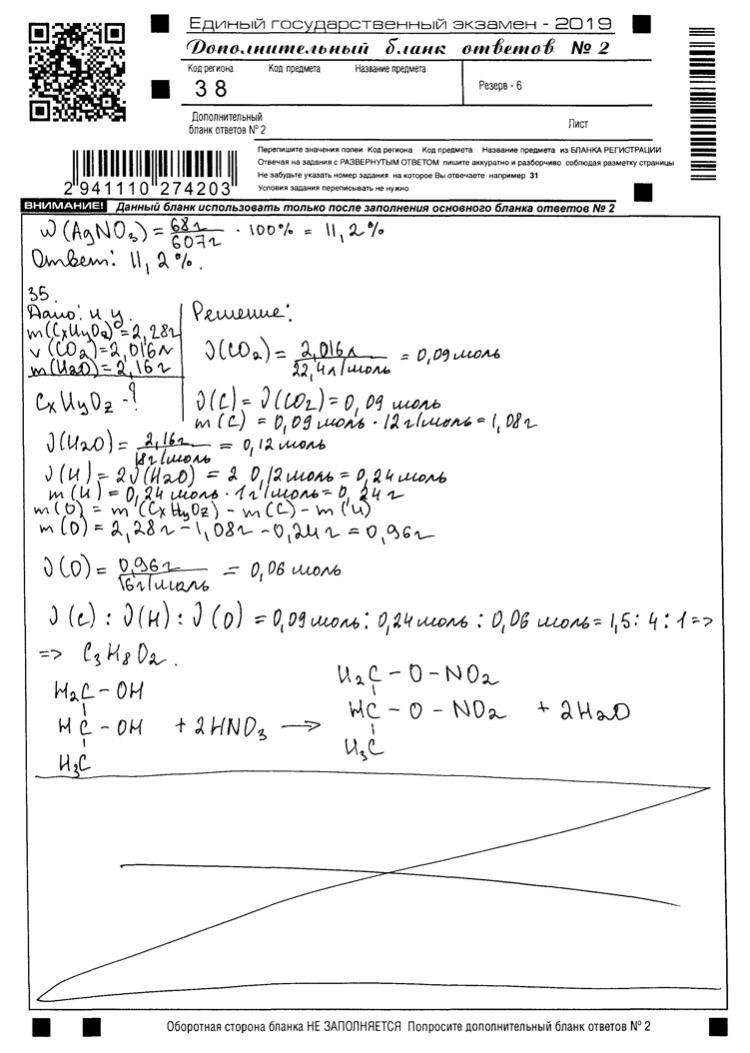 Единый государственный экзамен - 2019
Дополнительный бланк ответов № 2
Код региона Код предмета Название предмета
38
Резерв - 6
Дополнительный
бланк ответов № 2
Лист
Перепишите значения полей Код региона Код предмета Название предмета из БЛАНКА РЕГИСТРАЦИИ
Отвечая на задания с РАЗВЕРНУТЫМ ОТВЕТОМ пишите аккуратно и разборчиво соблюдая разметку страницы
Не забудьте указать номер задания на которое Вы отвечаете например 31
Условия задания переписывать не нужно
2 941110 274203
ВНИМАНИЕ! Данный бланк использовать только после заполнения основного бланка ответов № 2
ω(AgNO3) = 68г/607г · 100% = 11,2%
Ответ: 11,2%.
35.
Дано: н у.
Решение:
m(CxHyOz) = 2,28г
v(CO2) = 2,016л
m(H2O) = 2,16г
ν(CO2) = 2,016л/22,4л/моль = 0,09 моль
CxHyOz - ?
ν(C) = ν(CO2) = 0,09 моль
m(C) = 0,09 моль · 12 г/моль = 1,08г
ν(H2O) = 2,16г/18г/моль = 0,12 моль
ν(H) = 2ν(H2O) = 2 0,12 моль = 0,24 моль
m(H) = 0,24 моль · 1 г/моль = 0,24 г
m(O) = m(CxHyOz) - m(C) - m(H)
m(O) = 2,28г - 1,08г - 0,24г = 0,96г
ν(O) = 0,96г/16г/моль = 0,06 моль
ν(C) : ν(H) : ν(O) = 0,09 моль : 0,24 моль : 0,06 моль = 1,5 : 4 : 1 =>
=> C3H8O2.
H2C - OH H2C - O - NO2
HC - OH + 2HNO3 → HC - O - NO2 + 2H2O
H3C H3C
Оборотная сторона бланка НЕ ЗАПОЛНЯЕТСЯ Попросите дополнительный бланк ответов № 2